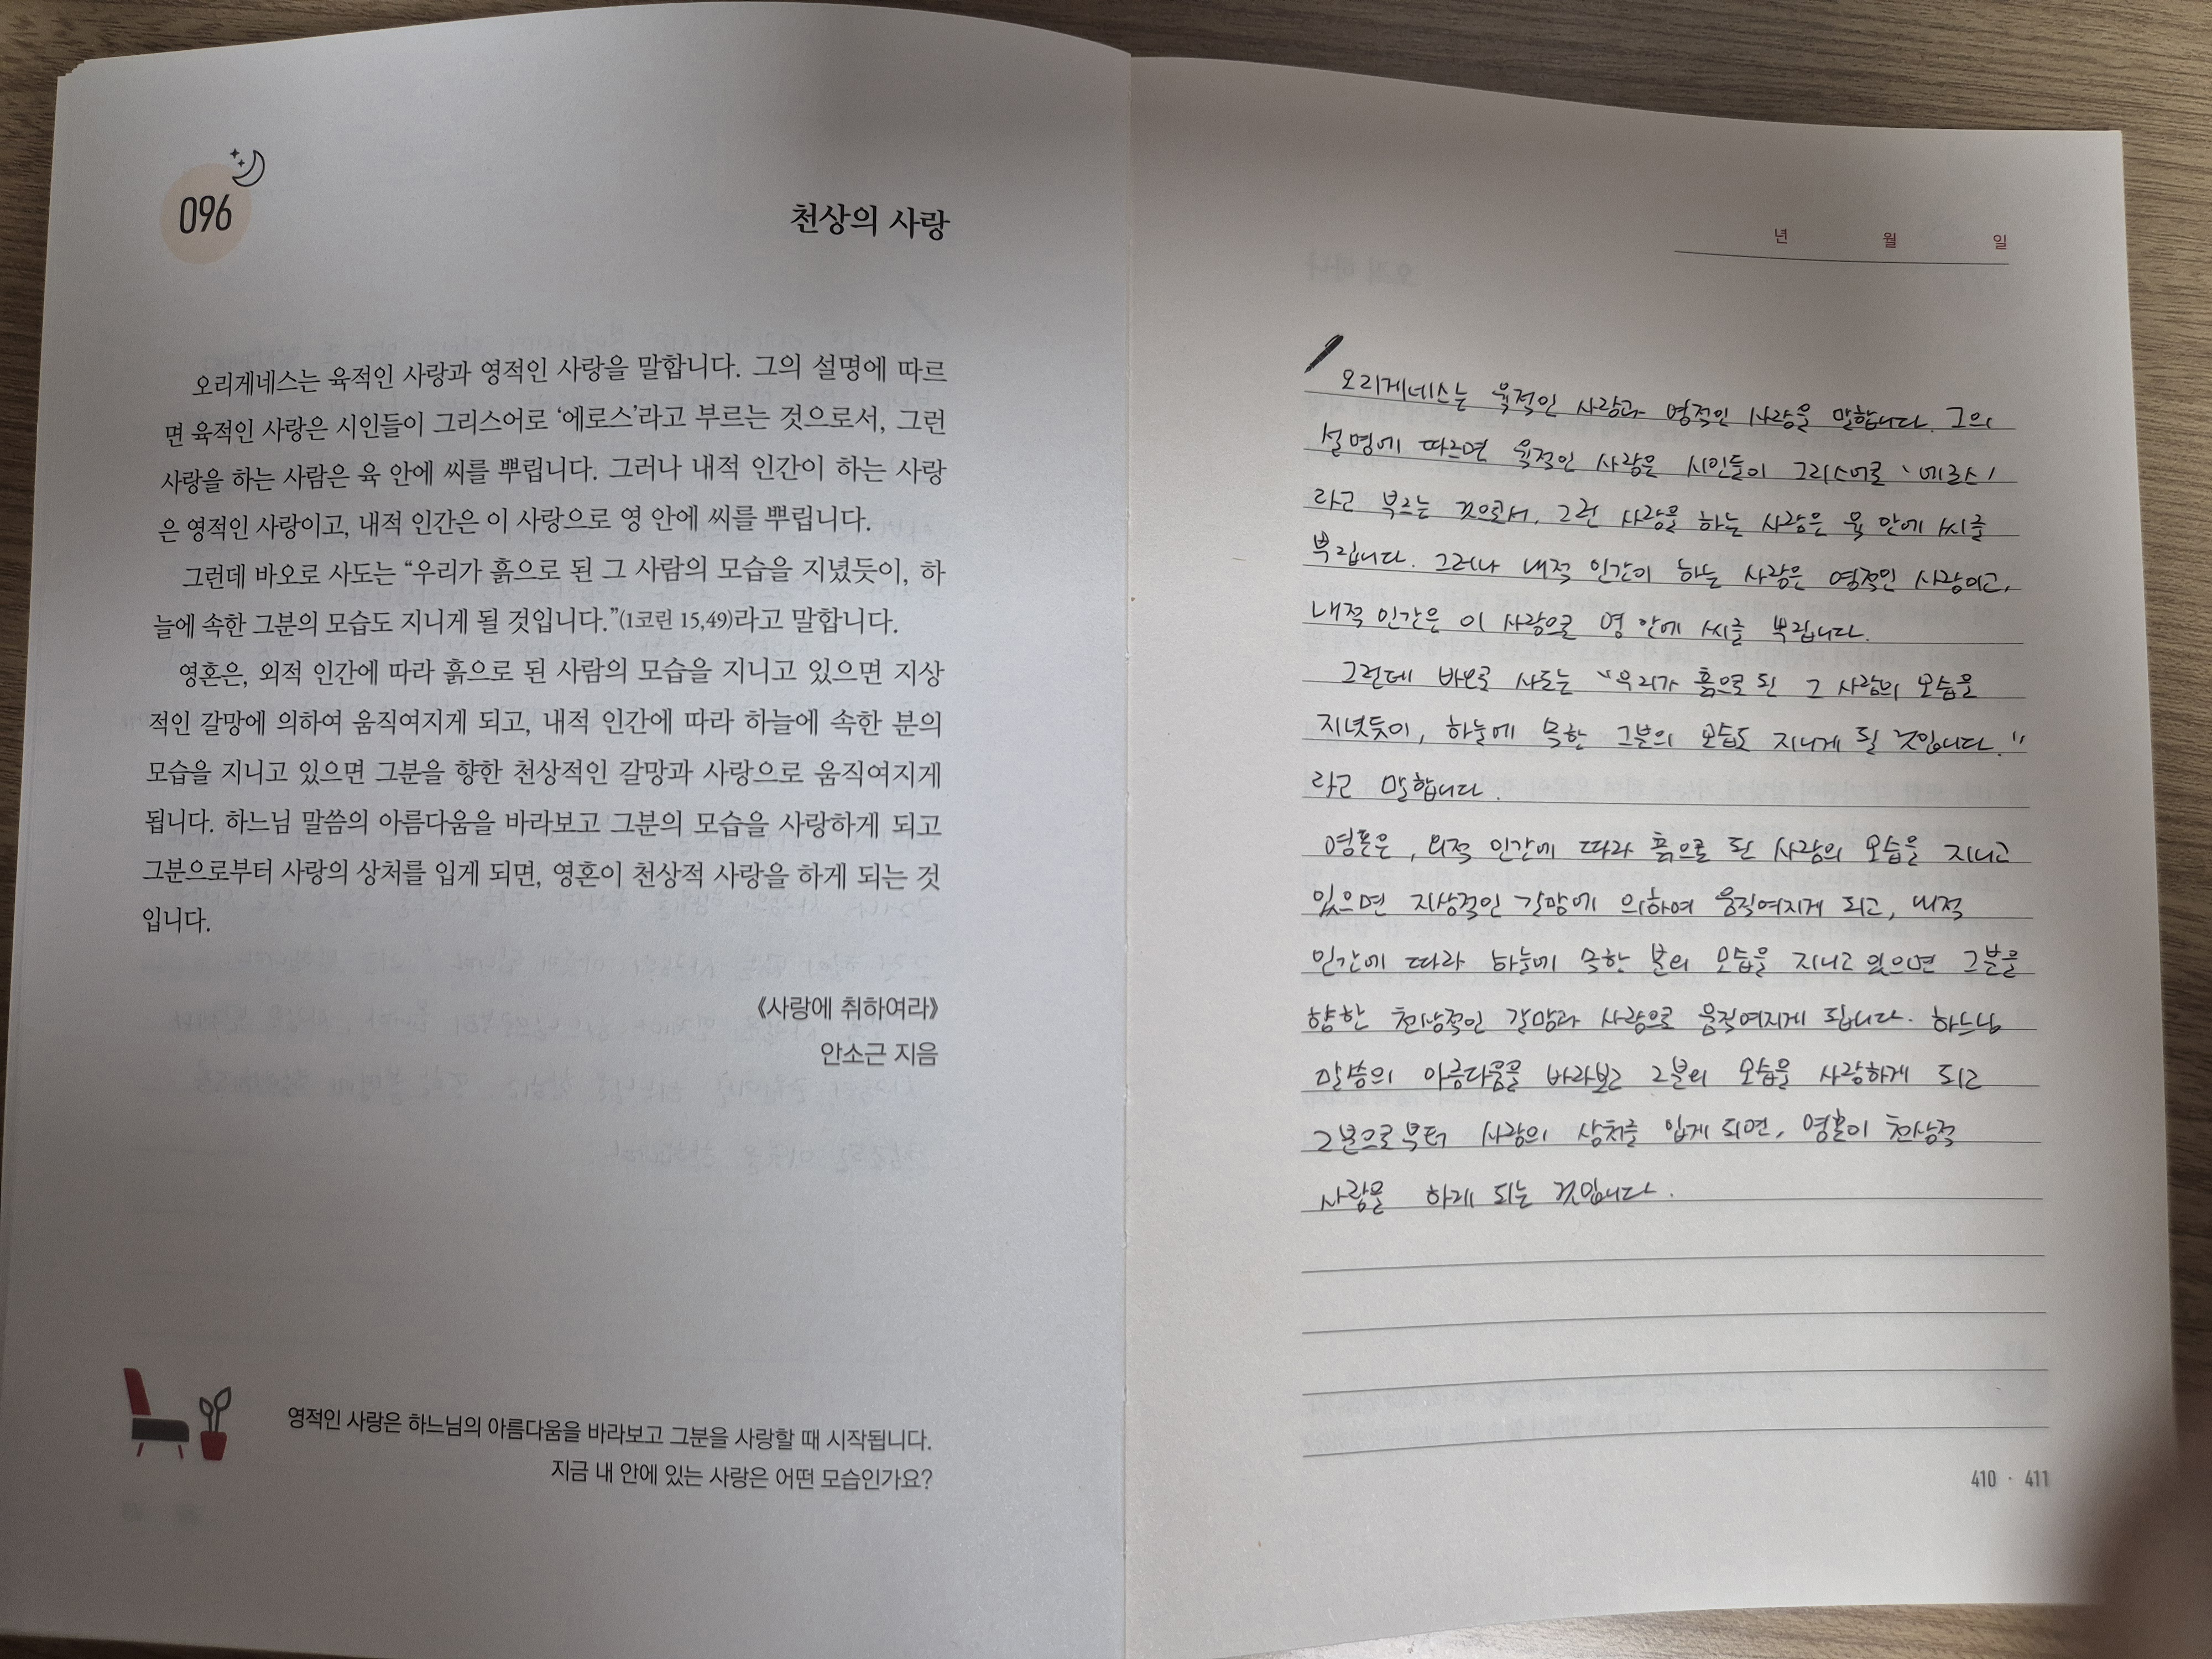 096
천상의 사랑
오리게네스는 육적인 사랑과 영적인 사랑을 말합니다. 그의 설명에 따르
면 육적인 사랑은 시인들이 그리스어로 ‘에로스’라고 부르는 것으로서, 그런
사랑을 하는 사람은 육 안에 씨를 뿌립니다. 그러나 내적 인간이 하는 사랑
은 영적인 사랑이고, 내적 인간은 이 사랑으로 영 안에 씨를 뿌립니다.
그런데 바오로 사도는 “우리가 흙으로 된 그 사람의 모습을 지녔듯이, 하
늘에 속한 그분의 모습도 지니게 될 것입니다.”(1코린 15,49)라고 말합니다.
영혼은, 외적 인간에 따라 흙으로 된 사람의 모습을 지니고 있으면 지상
적인 갈망에 의하여 움직여지게 되고, 내적 인간에 따라 하늘에 속한 분의
모습을 지니고 있으면 그분을 향한 천상적인 갈망과 사랑으로 움직여지게
됩니다. 하느님 말씀의 아름다움을 바라보고 그분의 모습을 사랑하게 되고
그분으로부터 사랑의 상처를 입게 되면, 영혼이 천상적 사랑을 하게 되는 것
입니다.
《사랑에 취하여라》
안소근 지음
영적인 사랑은 하느님의 아름다움을 바라보고 그분을 사랑할 때 시작됩니다.
지금 내 안에 있는 사랑은 어떤 모습인가요?
년 월 일
오리게네스는 육적인 사랑과 영적인 사랑을 말합니다. 그의
설명에 따르면 육적인 사랑은 시인들이 그리스어로 '에로스'
라고 부르는 것으로서, 그런 사랑을 하는 사람은 육 안에 씨를
뿌립니다. 그러나 내적 인간이 하는 사랑은 영적인 사랑이고,
내적 인간은 이 사랑으로 영 안에 씨를 뿌립니다.
그런데 바오로 사도는 "우리가 흙으로 된 그 사람의 모습을
지녔듯이, 하늘에 속한 그분의 모습도 지니게 될 것입니다."
라고 말합니다.
영혼은, 외적 인간에 따라 흙으로 된 사람의 모습을 지니고
있으면 지상적인 갈망에 의하여 움직여지게 되고, 내적
인간에 따라 하늘에 속한 분의 모습을 지니고 있으면 그분을
향한 천상적인 갈망과 사랑으로 움직여지게 됩니다. 하느님
말씀의 아름다움을 바라보고 그분의 모습을 사랑하게 되고
그분으로부터 사랑의 상처를 입게 되면, 영혼이 천상적
사랑을 하게 되는 것입니다.
410 · 411